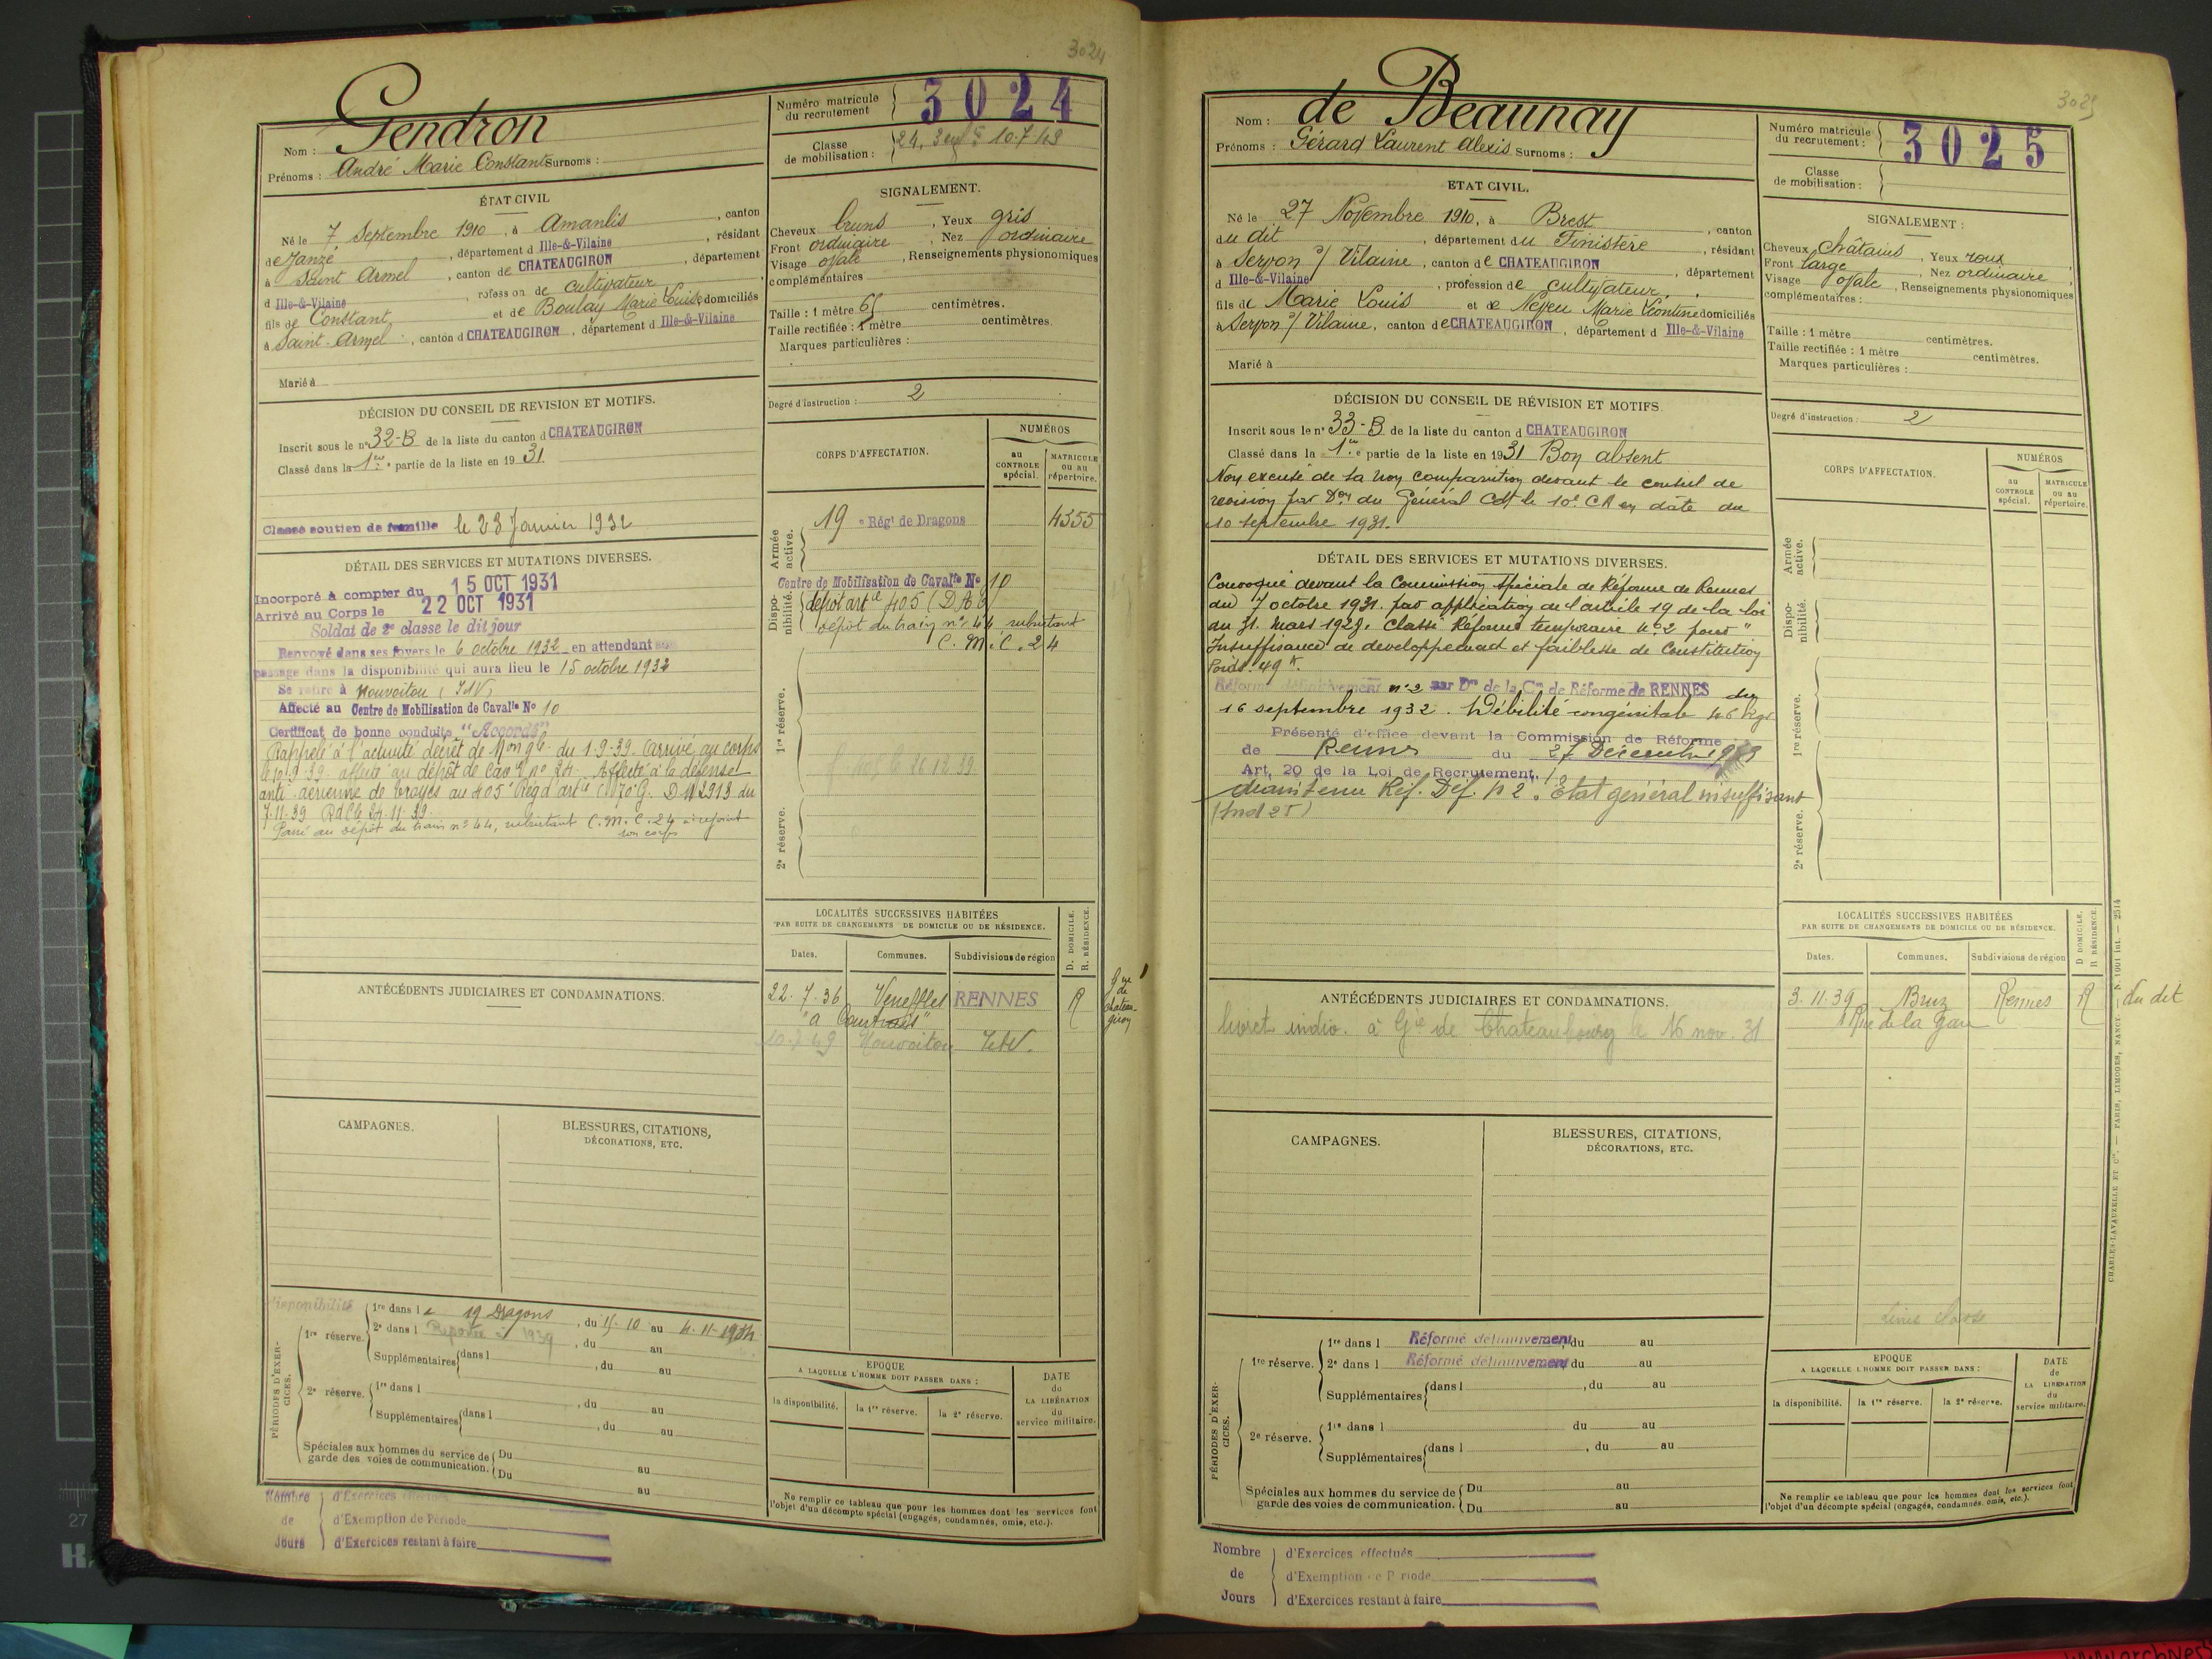 3024
Nom : Gendron
Prénoms : André Marie Constant Surnoms :
Numéro matricule du recrutement 3024
Classe de mobilisation :
ÉTAT CIVIL
Né le 7 Septembre 1910, à Amanlis, canton
de Janzé, département d Ille-&-Vilaine, résidant
à Saint Armel, canton de CHATEAUGIRON, département
d Ille-&-Vilaine, rofess on de cultivateur,
fils de Constant et de Boulay Marie Louise domiciliés
à Saint-Armel, canton d CHATEAUGIRON, département d Ille-&-Vilaine
Marié à
SIGNALEMENT.
Cheveux bruns, Yeux gris
Front ordinaire, Nez ordinaire
Visage ovale, Renseignements physionomiques
complémentaires
Taille : 1 mètre 65 centimètres.
Taille rectifiée : 1 mètre centimètres.
Marques particulières :
Degré d'instruction : 2
DÉCISION DU CONSEIL DE REVISION ET MOTIFS.
Inscrit sous le n° 32-B de la liste du canton d CHATEAUGIRON
Classé dans la 1re partie de la liste en 1931
Classé soutien de famille le 23 Janvier 1932
DÉTAIL DES SERVICES ET MUTATIONS DIVERSES.
Incorporé à compter du 15 OCT 1931
Arrivé au Corps le 22 OCT 1931
Soldat de 2e classe le dit jour
Renvoyé dans ses foyers le 6 octobre 1932 en attendant son
passage dans la disponibilité qui aura lieu le 15 octobre 1932
Se retire à Nouvoitou (I&V)
Affecté au Centre de Mobilisation de Cavalie No 10
Certificat de bonne conduite "Accordé"
Rappelé à l'activité décret de Mon gle du 1-9-39. Arrivé au corps
affecté au dépôt de Cavie n° 24. Affecté à la défense
anti aérienne de Troyes au 405e Rég d'artie
7.11.39
Passé au dépôt du train n° 44, substitant C.M.C. 24 a rejoint
son corps
CORPS D'AFFECTATION.
NUMÉROS
au CONTROLE spécial.
MATRICULE ou au répertoire.
Armée active.
19 e Régt de Dragons 4355
Disponibilité.
Centre de Mobilisation de Cavalie No 10
dépôt artie 405 (DAT)
dépôt du train n° 44 substitant
C.M.C. 24
1re réserve.
2e réserve.
LOCALITÉS SUCCESSIVES HABITÉES
PAR SUITE DE CHANGEMENTS DE DOMICILE OU DE RÉSIDENCE.
Dates. Communes. Subdivisions de région D. DOMICILE. R. RÉSIDENCE.
22.7.36 Veneffles RENNES R
Nouvoitou I&V.
ANTÉCÉDENTS JUDICIAIRES ET CONDAMNATIONS.
CAMPAGNES.
BLESSURES, CITATIONS, DÉCORATIONS, ETC.
Disponibilité
PÉRIODES D'EXERCICES.
1re réserve. 1re dans l e 19 Dragons, du 15-10 au 4-11-1934
2e dans l, du au
Supplémentaires dans l, du au
2e réserve. 1re dans l, du au
Supplémentaires dans l, du au
Spéciales aux hommes du service de garde des voies de communication. Du au
Du au
EPOQUE
A LAQUELLE L'HOMME DOIT PASSER DANS :
la disponibilité. la 1re réserve. la 2e réserve.
DATE de LA LIBÉRATION du service militaire.
Ne remplir ce tableau que pour les hommes dont les services font
l'objet d'un décompte spécial (engagés, condamnés, omis, etc.).
Nombre de Jours
d'Exercices effectués
d'Exemption de Période
d'Exercices restant à faire
3025
Nom : de Beaunay
Prénoms : Gérard Laurent Alexis Surnoms :
Numéro matricule du recrutement : 3025
Classe de mobilisation :
ETAT CIVIL.
Né le 27 Novembre 1910, à Brest, canton
du dit, département du Finistère, résidant
à Servon s/ Vilaine, canton de CHATEAUGIRON, département
d Ille-&-Vilaine, profession de cultivateur,
fils de Marie Louis et de Neveu Marie Léontine domiciliés
à Servon s/ Vilaine, canton de CHATEAUGIRON, département d Ille-&-Vilaine
Marié à
SIGNALEMENT :
Cheveux châtains, Yeux roux
Front large, Nez ordinaire
Visage ovale, Renseignements physionomiques
complémentaires :
Taille : 1 mètre centimètres.
Taille rectifiée : 1 mètre centimètres.
Marques particulières :
Degré d'instruction : 2
DÉCISION DU CONSEIL DE RÉVISION ET MOTIFS.
Inscrit sous le n° 33-B de la liste du canton d CHATEAUGIRON
Classé dans la 1re partie de la liste en 1931 Bon absent
Non excusé de sa non comparution devant le conseil de
revision par Don du Général Cdt le 10e CA en date du
10 septembre 1931.
DÉTAIL DES SERVICES ET MUTATIONS DIVERSES.
Convoqué devant la Commission spéciale de Réforme de Rennes
du 7 octobre 1931. par application de l'article 19 de la loi
du 31 mars 1928. Classé Réformé temporaire n°2 pour "
Insuffisance de développement et faiblesse de Constitution
Poids. 49 K.
Réformé définitivement n°2 par Don de la Con de Réforme de RENNES du
16 septembre 1932. Débilité congénitale 46 kgs
Présenté d'office devant la Commission de Réforme
de Rennes du 27 Décembre 1939
Art. 20 de la Loi de Recrutement.
Maintenu Réf. Déf. n° 2. Etat général insuffisant
CORPS D'AFFECTATION.
NUMÉROS
au CONTROLE spécial.
MATRICULE ou au répertoire.
Armée active.
Disponibilité.
1re réserve.
2e réserve.
LOCALITÉS SUCCESSIVES HABITÉES
PAR SUITE DE CHANGEMENTS DE DOMICILE OU DE RÉSIDENCE.
Dates. Communes. Subdivisions de région D DOMICILE. R RÉSIDENCE.
3.11.39 Bruz Rennes R du dit
Rue de la Gare
ANTÉCÉDENTS JUDICIAIRES ET CONDAMNATIONS.
livret indiv. à Gie de Chateaubourg le 16 nov. 31
CAMPAGNES.
BLESSURES, CITATIONS, DÉCORATIONS, ETC.
PÉRIODES D'EXERCICES.
1re réserve. 1re dans l Réformé définitivement, du au
2e dans l Réformé définitivement du au
Supplémentaires dans l, du au
2e réserve. 1re dans l du au
Supplémentaires dans l, du au
Spéciales aux hommes du service de garde des voies de communication. Du au
Du au
EPOQUE
A LAQUELLE L'HOMME DOIT PASSER DANS :
la disponibilité. la 1re réserve. la 2e réserve.
DATE de LA LIBÉRATION du service militaire.
Ne remplir ce tableau que pour les hommes dont les services font
l'objet d'un décompte spécial (engagés, condamnés, omis, etc.).
Nombre de Jours
d'Exercices effectués
d'Exemption de Période
d'Exercices restant à faire
CHARLES-LAVAUZELLE ET Cie. — PARIS, LIMOGES, NANCY. N. 1001 int. — 2514
27